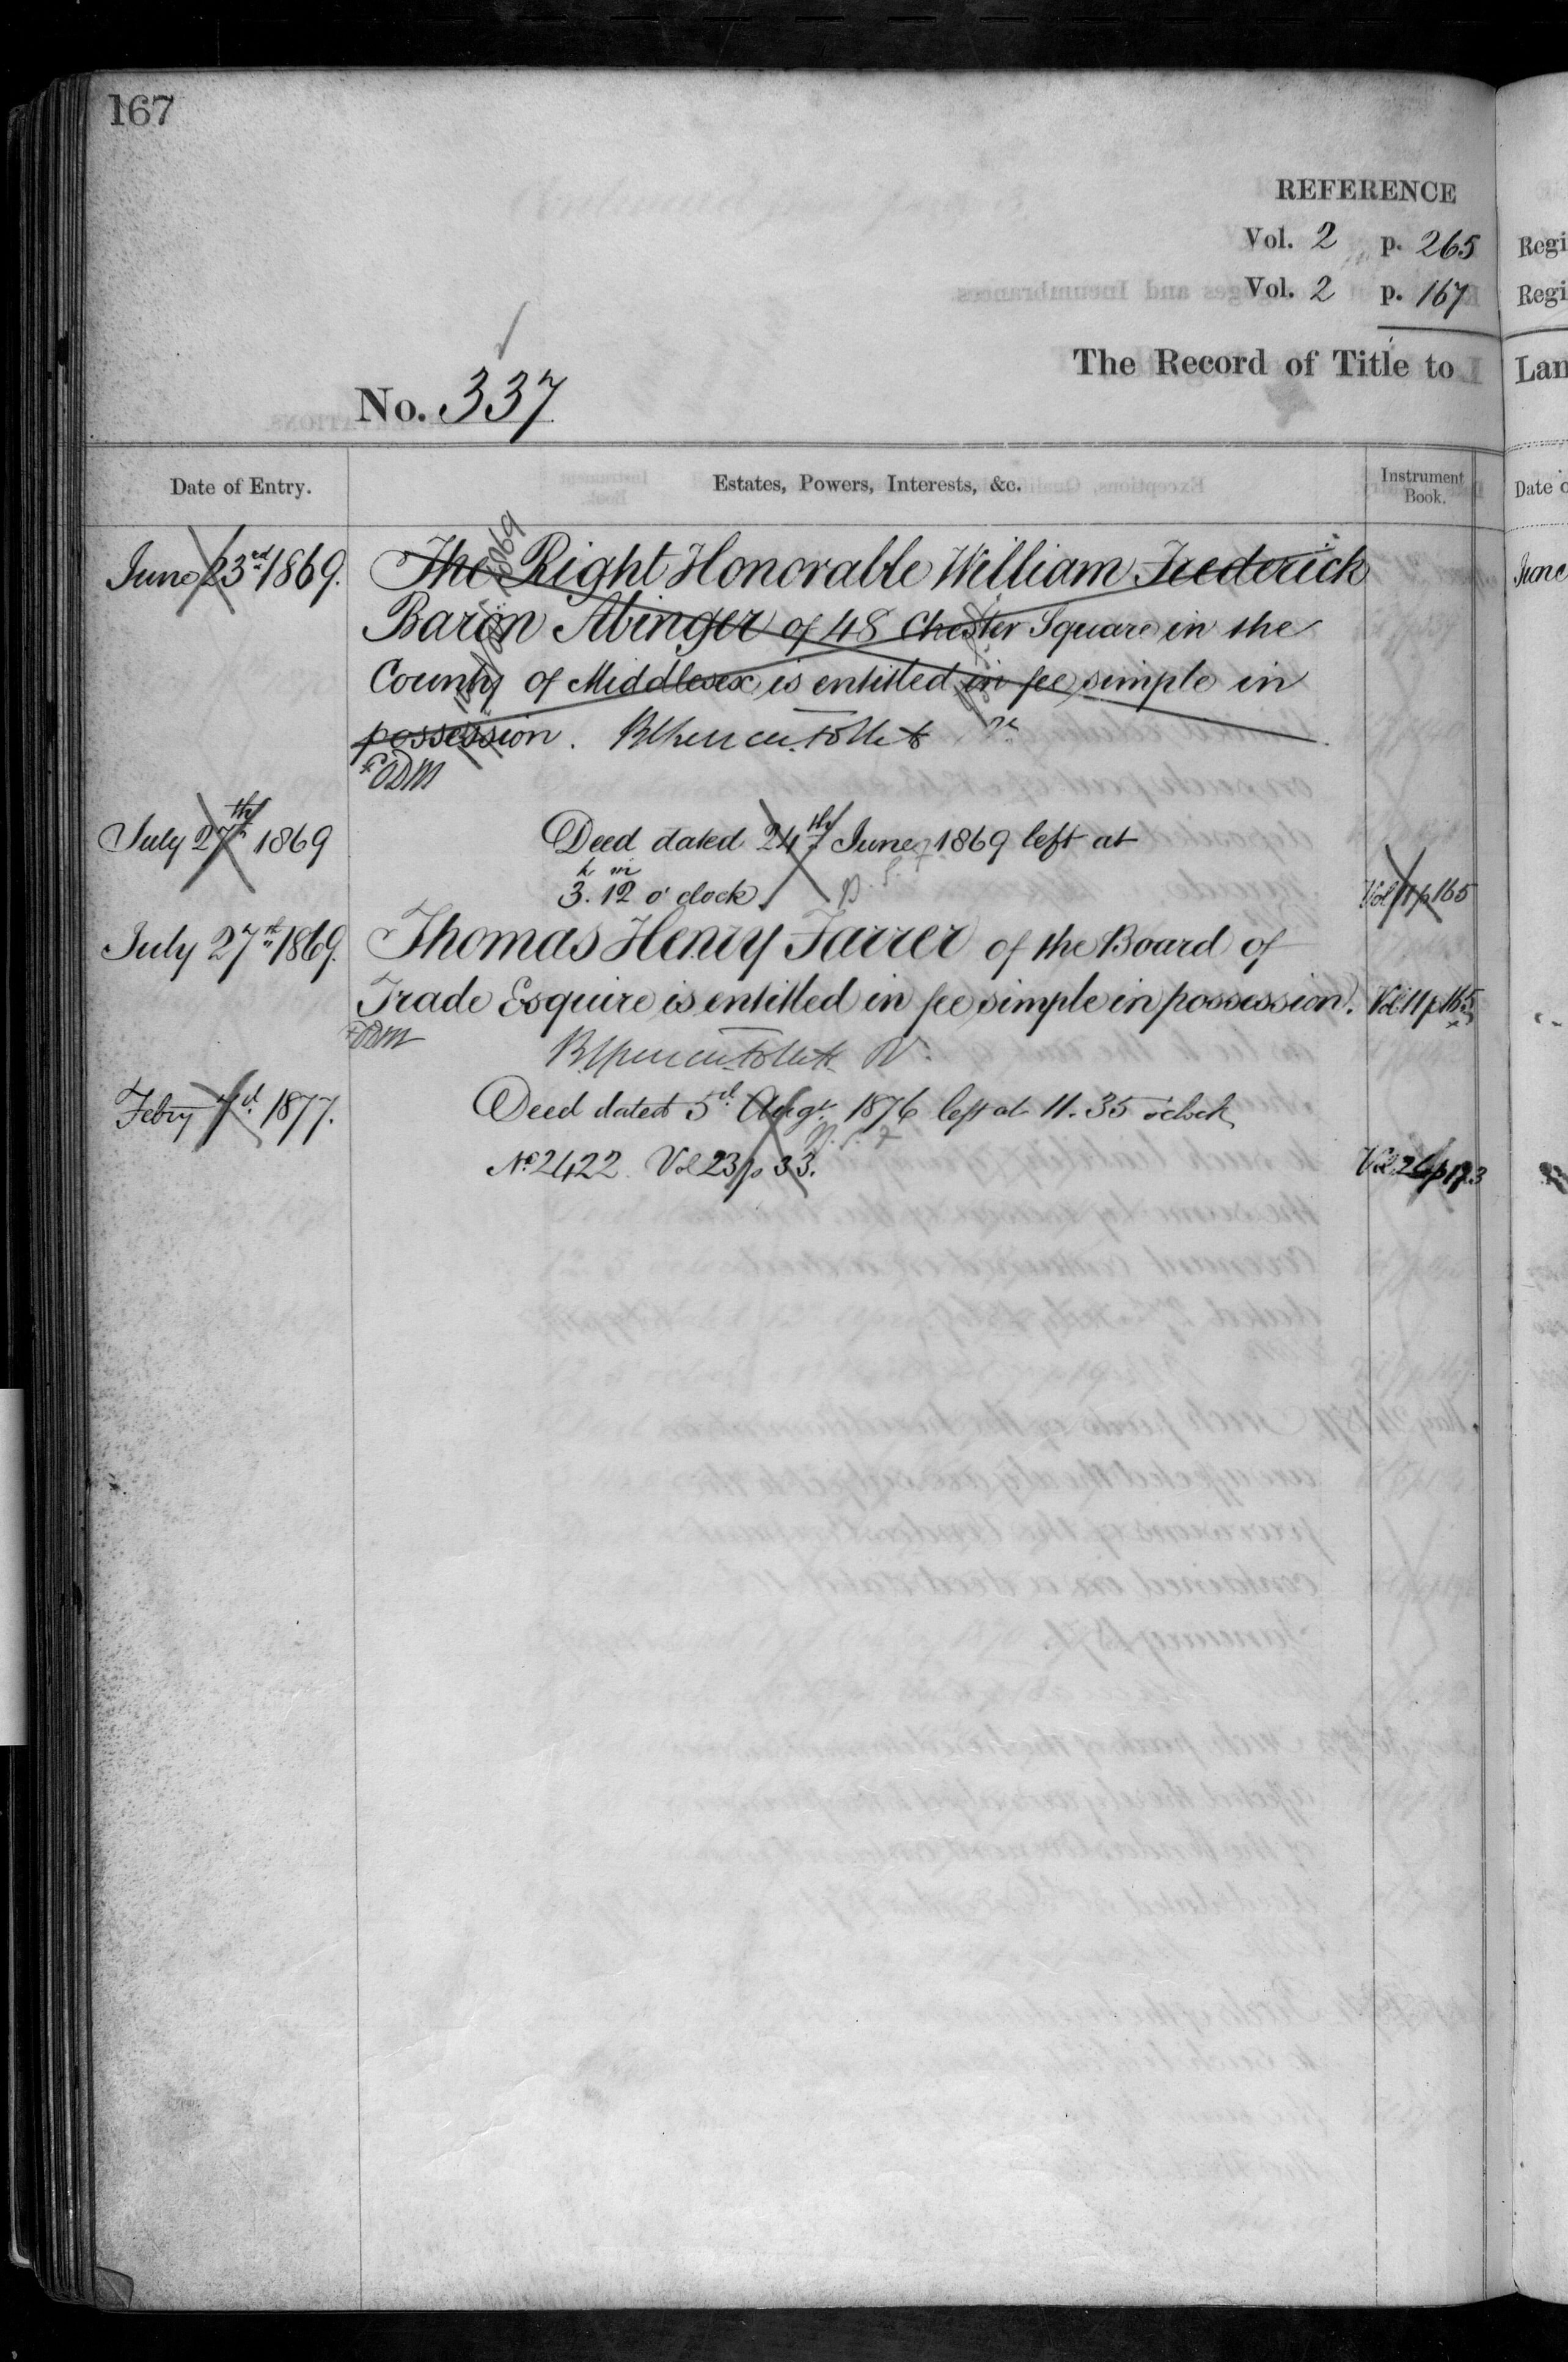 167
REFERENCE
Vol. 2 p. 265
Vol. 2 p. 167
The Record of Title to
No. 337
Date of Entry. Estates, Powers, Interests, &c. Instrument Book.
June 23rd 1869. The Right Honorable William Frederick
Baron Abinger of 48 Chester Square in the
County of Middlesex is entitled in fee simple in
possession.
July 27th 1869 Deed dated 24th June 1869 left at
h m
3. 12 o'clock. Vol 11 p 165
July 27th 1869. Thomas Henry Farrer of the Board of
Trade Esquire is entitled in fee simple in possession. Vol 11 p 165
Febry 1877. Deed dated 5d Augt. 1876 left at 11.35 o'clock
No 2422 Vol 23 p 33.
Regi
Regi
Lan
Date o
June